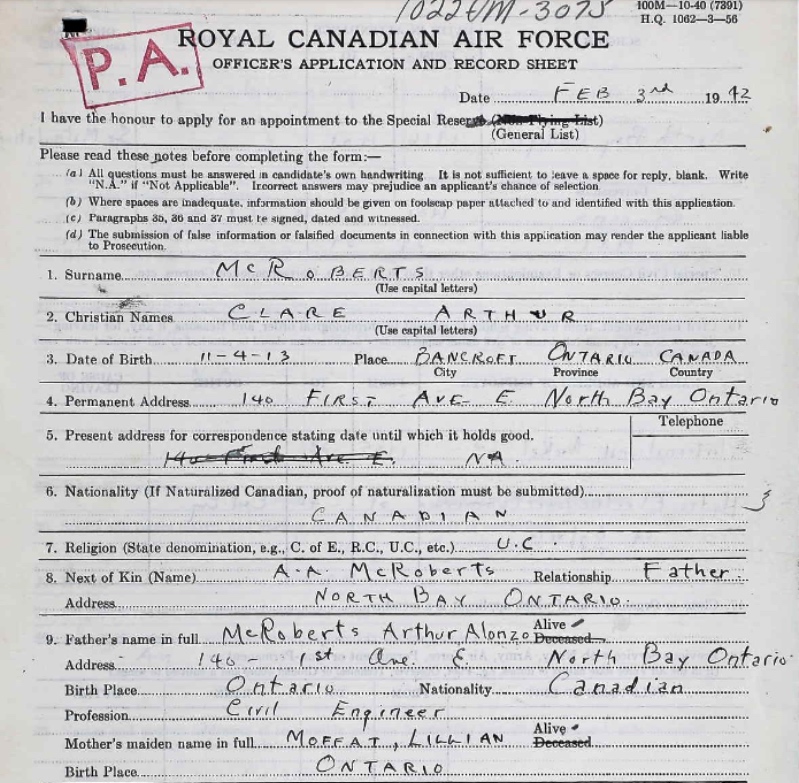 1022UM-3075
100M—10-40 (7391)
H.Q. 1062—3—56
P.A.
ROYAL CANADIAN AIR FORCE
OFFICER'S APPLICATION AND RECORD SHEET
Date FEB 3rd 1942
I have the honour to apply for an appointment to the Special Reserve (Non-Flying List)
(General List)
Please read these notes before completing the form:—
(a) All questions must be answered in candidate's own handwriting It is not sufficient to leave a space for reply, blank. Write
"N.A." if "Not Applicable". Incorrect answers may prejudice an applicant's chance of selection
(b) Where spaces are inadequate, information should be given on foolscap paper attached to and identified with this application.
(c) Paragraphs 35, 36 and 37 must be signed, dated and witnessed.
(d) The submission of false information or falsified documents in connection with this application may render the applicant liable
to Prosecution.
1. Surname McROBERTS
(Use capital letters)
2. Christian Names CLARE ARTHUR
(Use capital letters)
3. Date of Birth 11-4-13 Place BANCROFT ONTARIO CANADA
City Province Country
4. Permanent Address 140 FIRST AVE E North Bay Ontario
5. Present address for correspondence stating date until which it holds good. Telephone
140 First Ave. E. NA.
6. Nationality (If Naturalized Canadian, proof of naturalization must be submitted)
CANADIAN
7. Religion (State denomination, e.g., C. of E., R.C., U.C., etc.) U.C.
8. Next of Kin (Name) A.A. McRoberts Relationship Father
Address NORTH BAY ONTARIO.
9. Father's name in full McRoberts Arthur Alonzo Alive Deceased
Address 140 - 1st Ave. E. North Bay Ontario
Birth Place Ontario Nationality Canadian
Profession Civil Engineer
Mother's maiden name in full MOFFAT, LILLIAN Alive Deceased
Birth Place ONTARIO